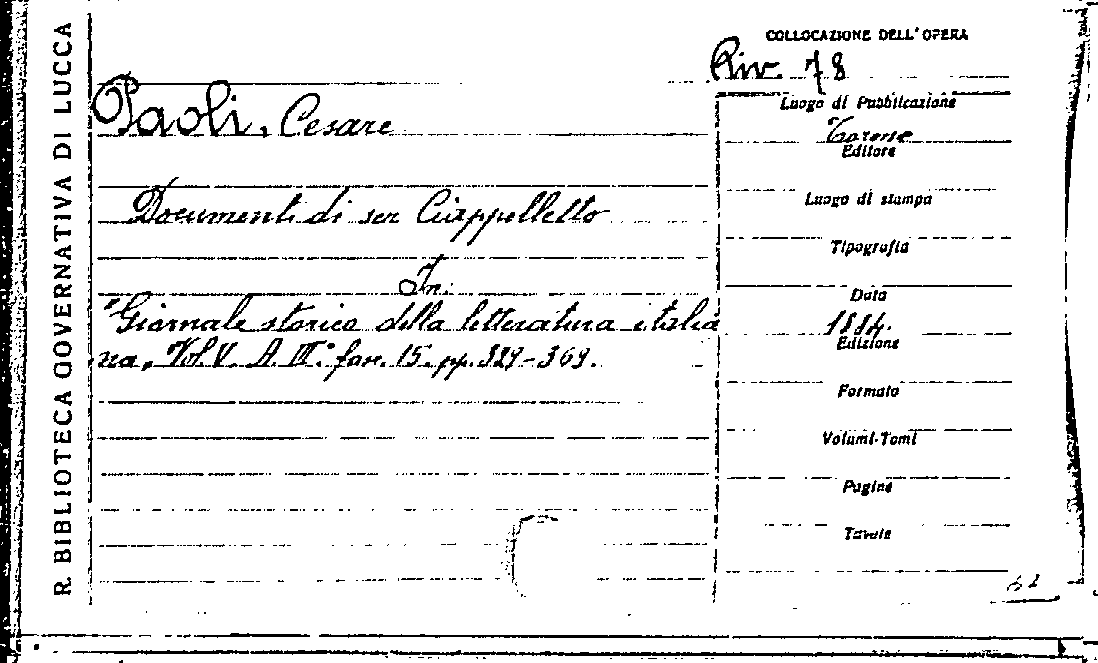 R. BIBLIOTECA GOVERNATIVA DI LUCCA
COLLOCAZIONE DELL'OPERA
Riv. 78
Paoli, Cesare
Documenti di ser Ciappelletto
In:
"Giornale storico della letteratura italia
na, Vol. V. A. III° fasc. 15. pp. 329-369.
Luogo di Pubblicazione
Torino
Editore
Luogo di stampa
Tipografia
Data
1884.
Edizione
Formato
Volumi-Tomi
Pagine
Tavole